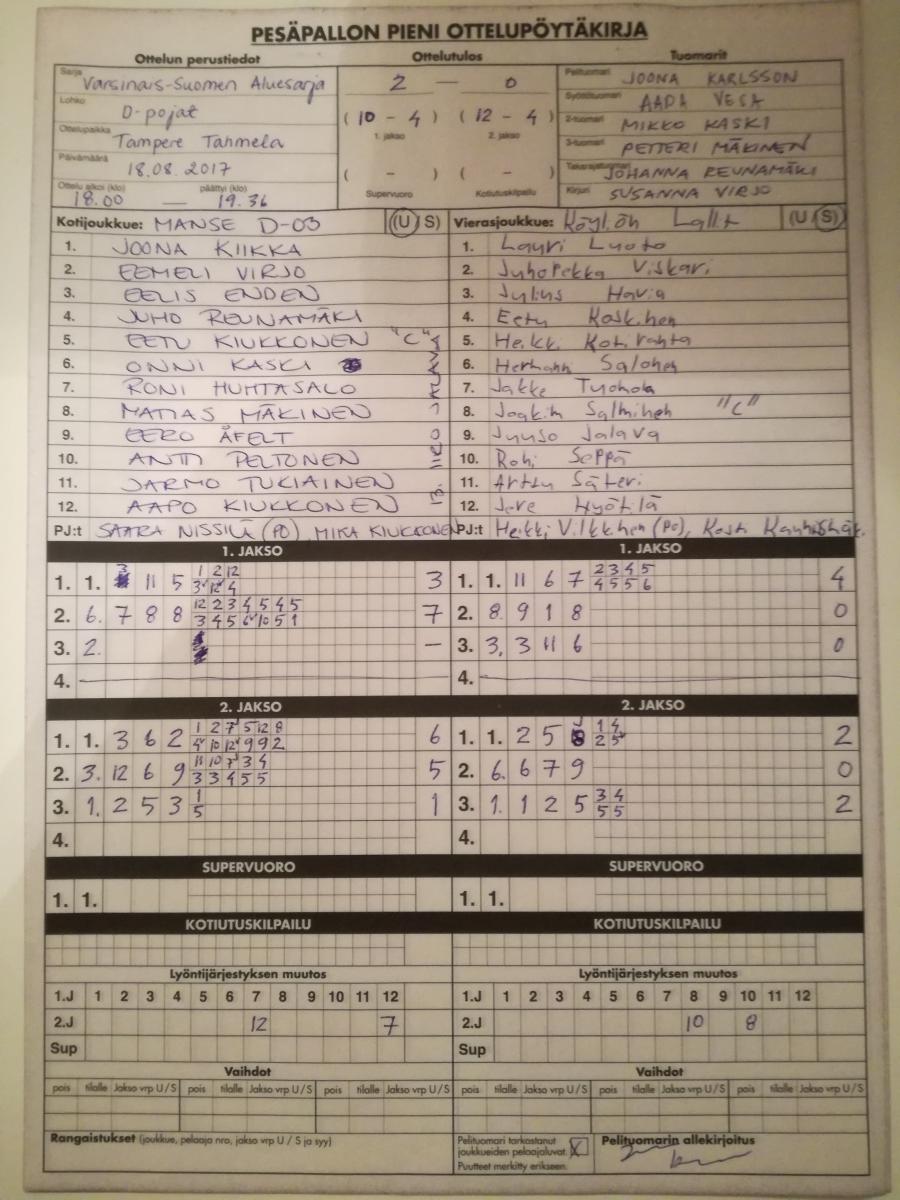 PESÄPALLON PIENI OTTELUPÖYTÄKIRJA
Ottelun perustiedot Ottelutulos Tuomarit
Sarja Varsinais-Suomen Aluesarja 2 — 0 Pelituomari JOONA KARLSSON
Lohko D-pojat (10 - 4) (12 - 4) Syöttötuomari AADA VESA
1. jakso 2. jakso 2-tuomari MIKKO KASKI
Ottelupaikka Tampere Tahmela 3-tuomari PETTERI MÄKINEN
Päivämäärä 18.08.2017 ( - ) ( - ) Takarajatuomari JOHANNA REUNAMÄKI
Ottelu alkoi (klo) päättyi (klo) Supervuoro Kotiutuskilpailu Kirjuri SUSANNA VIRJO
18.00 — 19.36
Kotijoukkue: MANSE D-03 (U S) Vierasjoukkue: Köyliön Lallit (U S)
1. JOONA KIIKKA 1. Lauri Luoto
2. EEMELI VIRJO 2. Juhopekka Viskari
3. EELIS ENDEN 3. Julius Havia
4. JUHO REUNAMÄKI 4. Eetu Koskinen
5. EETU KIUKKONEN "C" 5. Heikki Kotiranta
6. ONNI KASKI 6. Hermanni Salonen
7. RONI HUHTASALO 7. Jakke Tyohola
8. MATIAS MÄKINEN 8. Joakim Salminen "C"
9. EERO ÅFELT 9. Juuso Jalava
10. ANTTI PELTONEN 10. Roni Seppä
11. JARMO TUKIAINEN 11. Arttu Säteri
12. AAPO KIUKKONEN 12. Jere Hyötilä
PJ:t SAARA NISSILÄ (PO), MIKA KIUKKONEN PJ:t Heikki Vilkkinen (PO), Kosti
1. JAKSO 1. JAKSO
1. 1. 3 11 5 1 2 12 3 1. 1. 11 6 7 2 3 4 5 4
3 12 4 4 5 5 6
2. 6. 7 8 8 12 2 3 4 5 4 5 7 2. 8. 9 1 8 0
3 4 5 6 10 5 1
3. 2. — 3. 3. 3 11 6 0
4. 4.
2. JAKSO 2. JAKSO
1. 1. 3 6 2 1 2 7 5 12 8 6 1. 1. 2 5 1 4 2
4 10 12 9 9 2 2 5
2. 3. 12 6 9 11 10 7 3 4 5 2. 6. 6 7 9 0
3 3 4 5 5
3. 1. 2 5 3 1 1 3. 1. 1 2 5 3 4 2
5 5 5
4. 4.
SUPERVUORO SUPERVUORO
1. 1. 1. 1.
KOTIUTUSKILPAILU KOTIUTUSKILPAILU
Lyöntijärjestyksen muutos Lyöntijärjestyksen muutos
1.J 1 2 3 4 5 6 7 8 9 10 11 12 1.J 1 2 3 4 5 6 7 8 9 10 11 12
2.J 12 7 2.J 10 8
Sup Sup
Vaihdot Vaihdot
pois tilalle Jakso vrp U / S pois tilalle Jakso vrp U / S pois tilalle Jakso vrp U / S pois tilalle Jakso vrp U / S pois tilalle Jakso vrp U / S pois tilalle Jakso vrp U / S
Rangaistukset (joukkue, pelaaja nro, jakso vrp U / S ja syy) Pelituomari tarkastanut X Pelituomarin allekirjoitus
joukkueiden pelaajaluvat.
Puutteet merkitty erikseen.